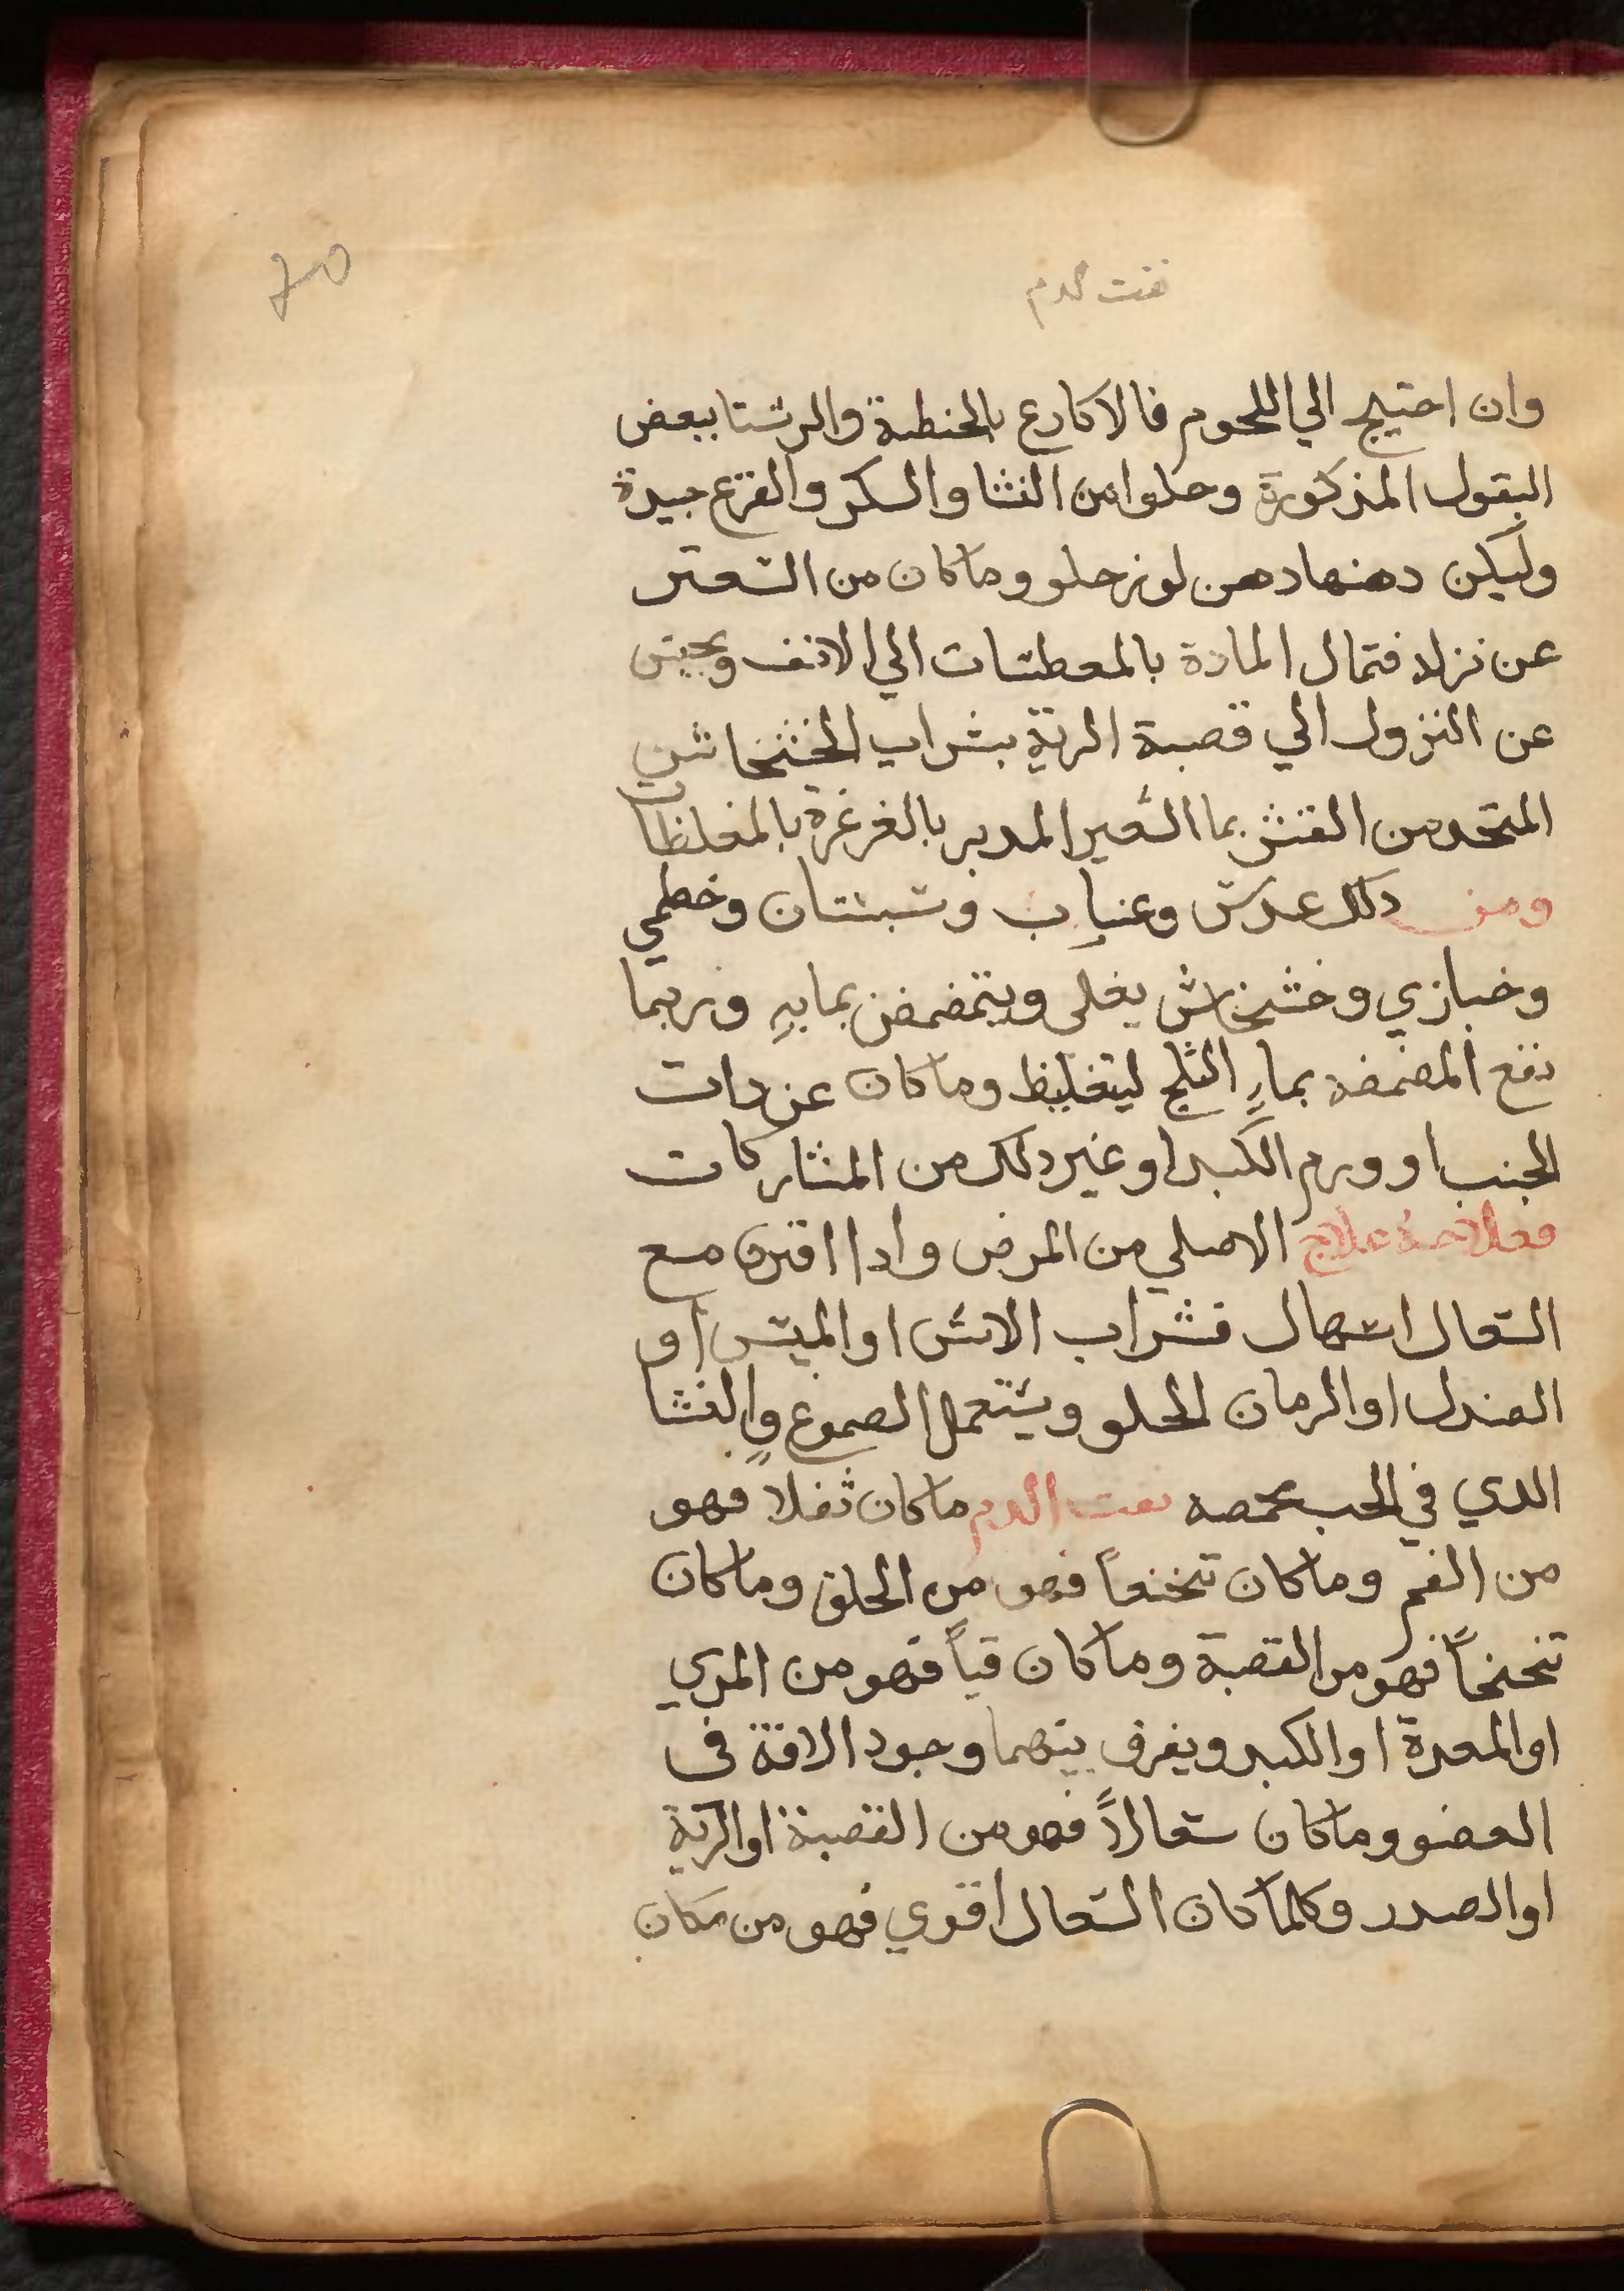 نفث الدم
وان احتيج الي اللحوم فالاكارع بالحنطة والرشتا ببعض
البقول المذكورة وحلوا من النشا والسكر والقرع جيدة
وليكن دهنها دهن لوز حلو وما كان من السعتر
عن نزلة فتمال المادة بالمعطسات الي الانف ويحبس
عن النزول الي قصبة الرية بشراب الخشخاش
المتخد من القشر بما الشعير المدبر بالغرغرة بالمغلظات
ومن دلك عدس وعناب وسبستان وخطمي
وخبازي وخشخاش يغلى ويتمضمض بمايه وربما
نفع المضمضه بماء الثلج ليتغليظ وما كان عن دات
الجنب او ورم الكبد او غير دلك من المشاركات
فعلاجه علاج الاصلي من المرض وادا اقترن مع
السعال اسهال فشراب الاس او الميس او
الصندل او الرمان الحلو ويستعمل الصموغ والنشا
الدي في الحب بحمصه نفت الدم ما كان ثفلا فهو
من الفم وما كان تنخعاً فهو من الحلق وما كان
تنحنحاً فهو من القصبة وما كان قياً فهو من المري
او المعدة او الكبد ويفرق بينهما وجود الافة في
العضو وما كان سعالاً فهو من القصبة او الرية
او الصدر وكلما كان السعال اقوي فهو من مكان